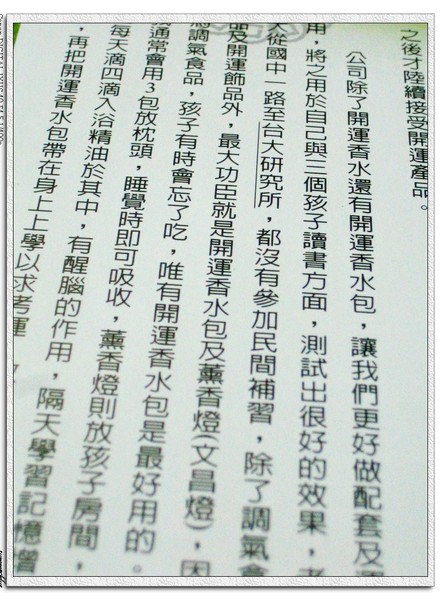 之後才陸續接受開運產品。
公司除了開運香水還有開運香水包，讓我們更好做配套及
用，將之用於自己與三個孩子讀書方面，測試出很好的效果，老
大從國中一路至台大研究所，都沒有參加民間補習，除了調氣食
品及開運飾品外，最大功臣就是開運香水包及薰香燈(文昌燈)，因
為調氣食品，孩子有時會忘了吃，唯有開運香水包是最好用的。
我通常會用3包放枕頭，睡覺時即可吸收，薰香燈則放孩子房間，
每天滴四滴入浴精油於其中，有醒腦的作用，隔天學習記憶增
，再把開運香水包帶在身上上學以求考運